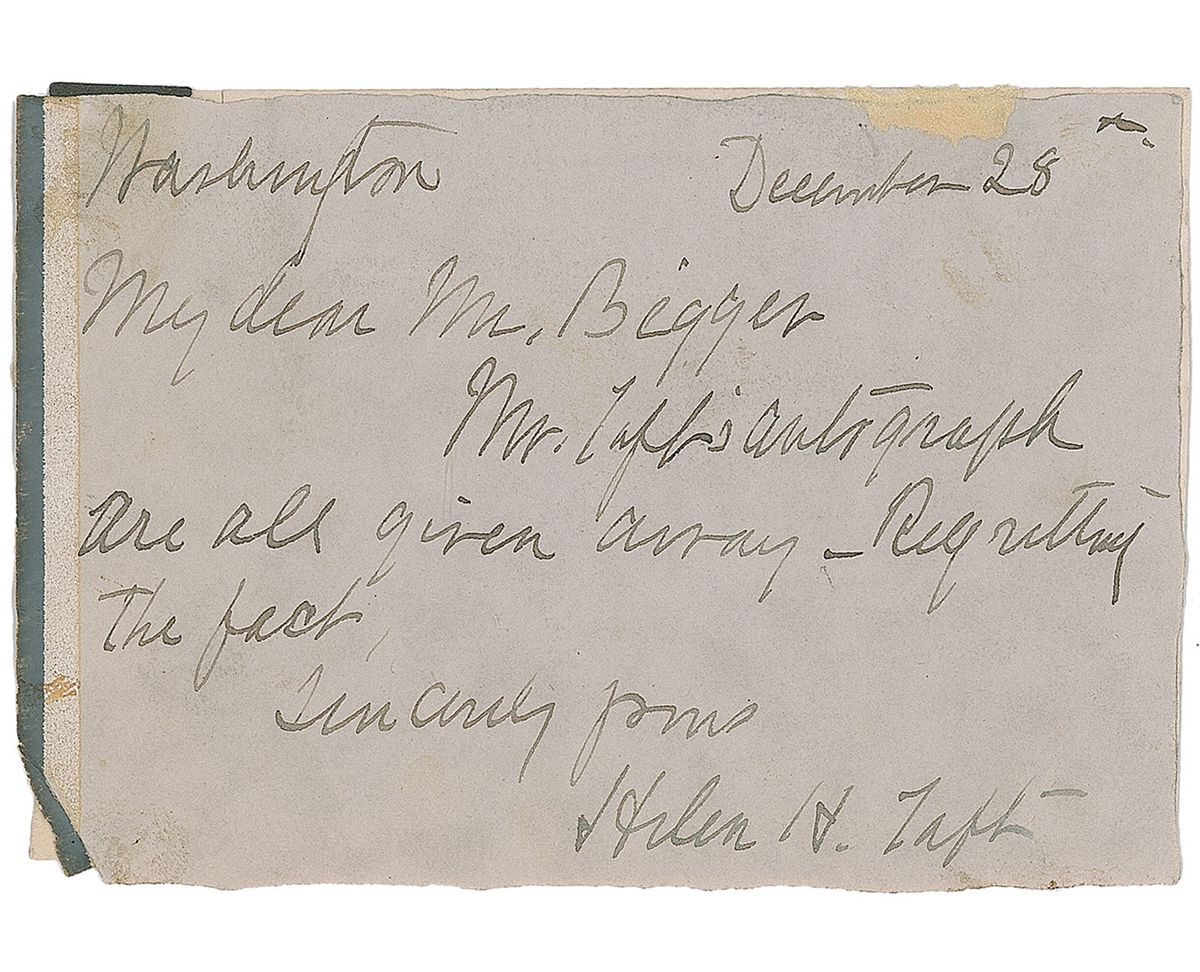 Washington December 28th.
My dear Mr. Bigger
Mr. Taft's autograph
are all given away — Regretting
the fact,
Sincerely yours
Helen H. Taft